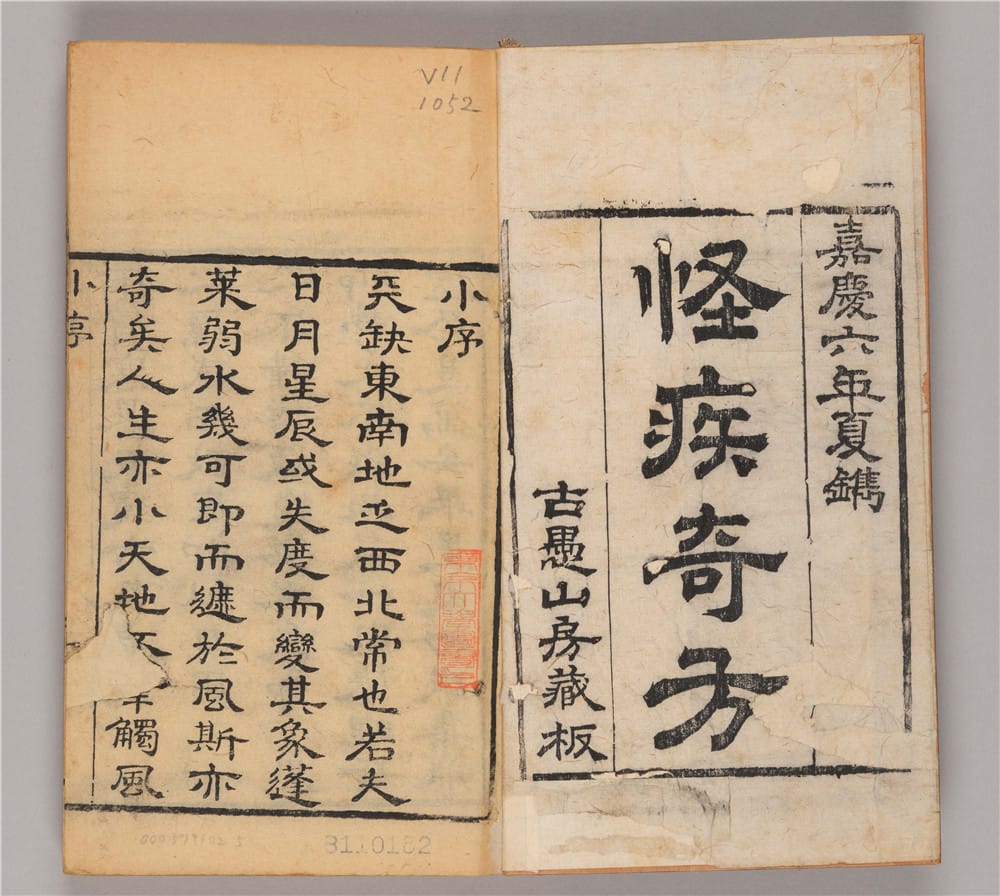 嘉慶六年夏鐫
怪疾奇方
古愚山房藏板
小序
天缺東南地𠀇西北常也若夫
日月星辰或失度而變其象蓬
萊弱水幾可即而遽於風斯亦
奇矣人生亦小天地不觸風
小序
V11
1052
3110152